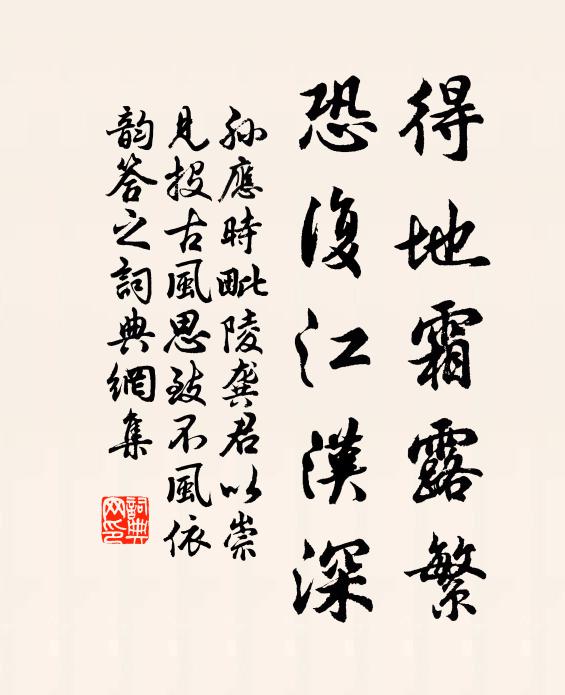 得地霜露繁
恐復江漢深
孫應時毗陵龔君以崇
見投古風思致不風依
韵答之詞典網集
詞典
网印